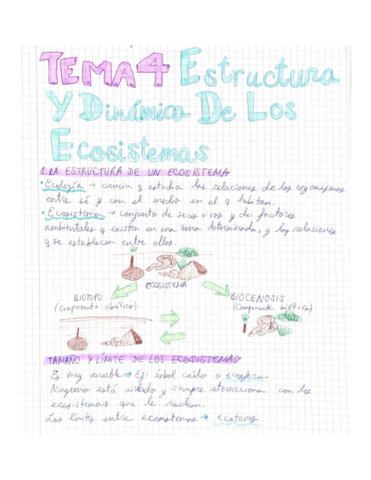 TEMA 4 Estructura
Y Dinámica De Los
Ecosistemas
1. LA ESTRUCTURA DE UN ECOSISTEMA
• Ecología → ciencia q estudia las relaciones de los organismos
entre sí y con el medio en el q habitan.
• Ecosistema → conjunto de seres vivos y de factores
ambientales q existen en una zona determinada, y las relaciones
q se establecen entre ellos.
ECOSISTEMA
BIOTOPO
(Componente abiótico)
BIOCENOSIS
(Componente biótico)
TAMAÑO Y LÍMITE DE LOS ECOSISTEMAS
Es muy variable → Ej: árbol caído o ecosfera.
Ninguno está aislado y siempre interacciona con los
ecosistemas que le rodean.
Los límites entre ecosistemas → ecotonos